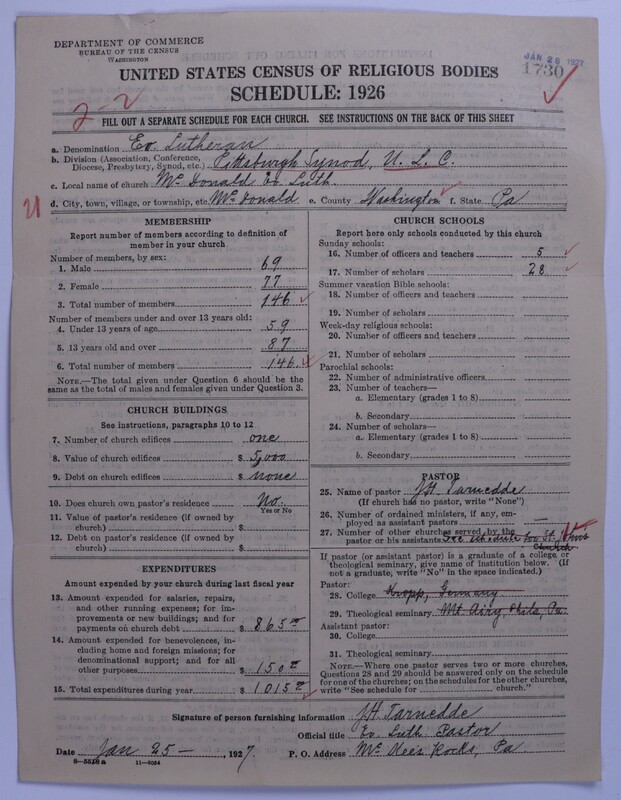 DEPARTMENT OF COMMERCE
BUREAU OF THE CENSUS
WASHINGTON
JAN 26 1927
1730
UNITED STATES CENSUS OF RELIGIOUS BODIES
SCHEDULE: 1926
2-2
FILL OUT A SEPARATE SCHEDULE FOR EACH CHURCH. SEE INSTRUCTIONS ON THE BACK OF THIS SHEET
a. Denomination Ev. Lutheran
b. Division (Association, Conference, Diocese, Presbytery, Synod, etc.) Pittsburgh Synod, U. L. C.
c. Local name of church Mc Donald Ev. Luth.
d. City, town, village, or township, etc. Mc Donald e. County Washington f. State Pa
MEMBERSHIP
Report number of members according to definition of
member in your church
Number of members, by sex:
1. Male 69
2. Female 77
3. Total number of members 146
Number of members under and over 13 years old:
4. Under 13 years of age 59
5. 13 years old and over 87
6. Total number of members 146
NOTE.—The total given under Question 6 should be
same as the total of males and females given under Question 3.
CHURCH BUILDINGS
See instructions, paragraphs 10 to 12
7. Number of church edifices one
8. Value of church edifices $ 5,000
9. Debt on church edifices $ none
10. Does church own pastor's residence? No
Yes or No
11. Value of pastor's residence (if owned by
church) $
12. Debt on pastor's residence (if owned by
church) $
EXPENDITURES
Amount expended by your church during last fiscal year
13. Amount expended for salaries, repairs,
and other running expenses; for im-
provements or new buildings; and for
payments on church debt $ 865.00
14. Amount expended for benevolences, in-
cluding home and foreign missions; for
denominational support; and for all
other purposes $ 150.00
15. Total expenditures during year $ 1015.00
CHURCH SCHOOLS
Report here only schools conducted by this church
Sunday schools:
16. Number of officers and teachers 5
17. Number of scholars 28
Summer vacation Bible schools:
18. Number of officers and teachers
19. Number of scholars
Week-day religious schools:
20. Number of officers and teachers
21. Number of scholars
Parochial schools:
22. Number of administrative officers
23. Number of teachers—
a. Elementary (grades 1 to 8)
b. Secondary
24. Number of scholars—
a. Elementary (grades 1 to 8)
b. Secondary
PASTOR
25. Name of pastor J. H. Tarnedde
(If church has no pastor, write "None")
26. Number of ordained ministers, if any, em-
ployed as assistant pastors —
27. Number of other churches served by the
pastor or his assistants See schedule for St. Johns
Church
If pastor (or assistant pastor) is a graduate of a college or
theological seminary, give name of institution below. (If
not a graduate, write "No" in the space indicated.)
Pastor:
28. College Kropp, Germany
29. Theological seminary Mt. Airy, Phila, Pa.
Assistant pastor:
30. College
31. Theological seminary
NOTE.—Where one pastor serves two or more churches,
Questions 28 and 29 should be answered only on the schedule
for one of the churches; on the schedules for the other churches,
write "See schedule for church."
Signature of person furnishing information J. H. Tarnedde
Official title Ev. Luth Pastor
Date Jan 25 —, 1927. P. O. Address Mc Kees Rocks, Pa
8—5518a 11—8064